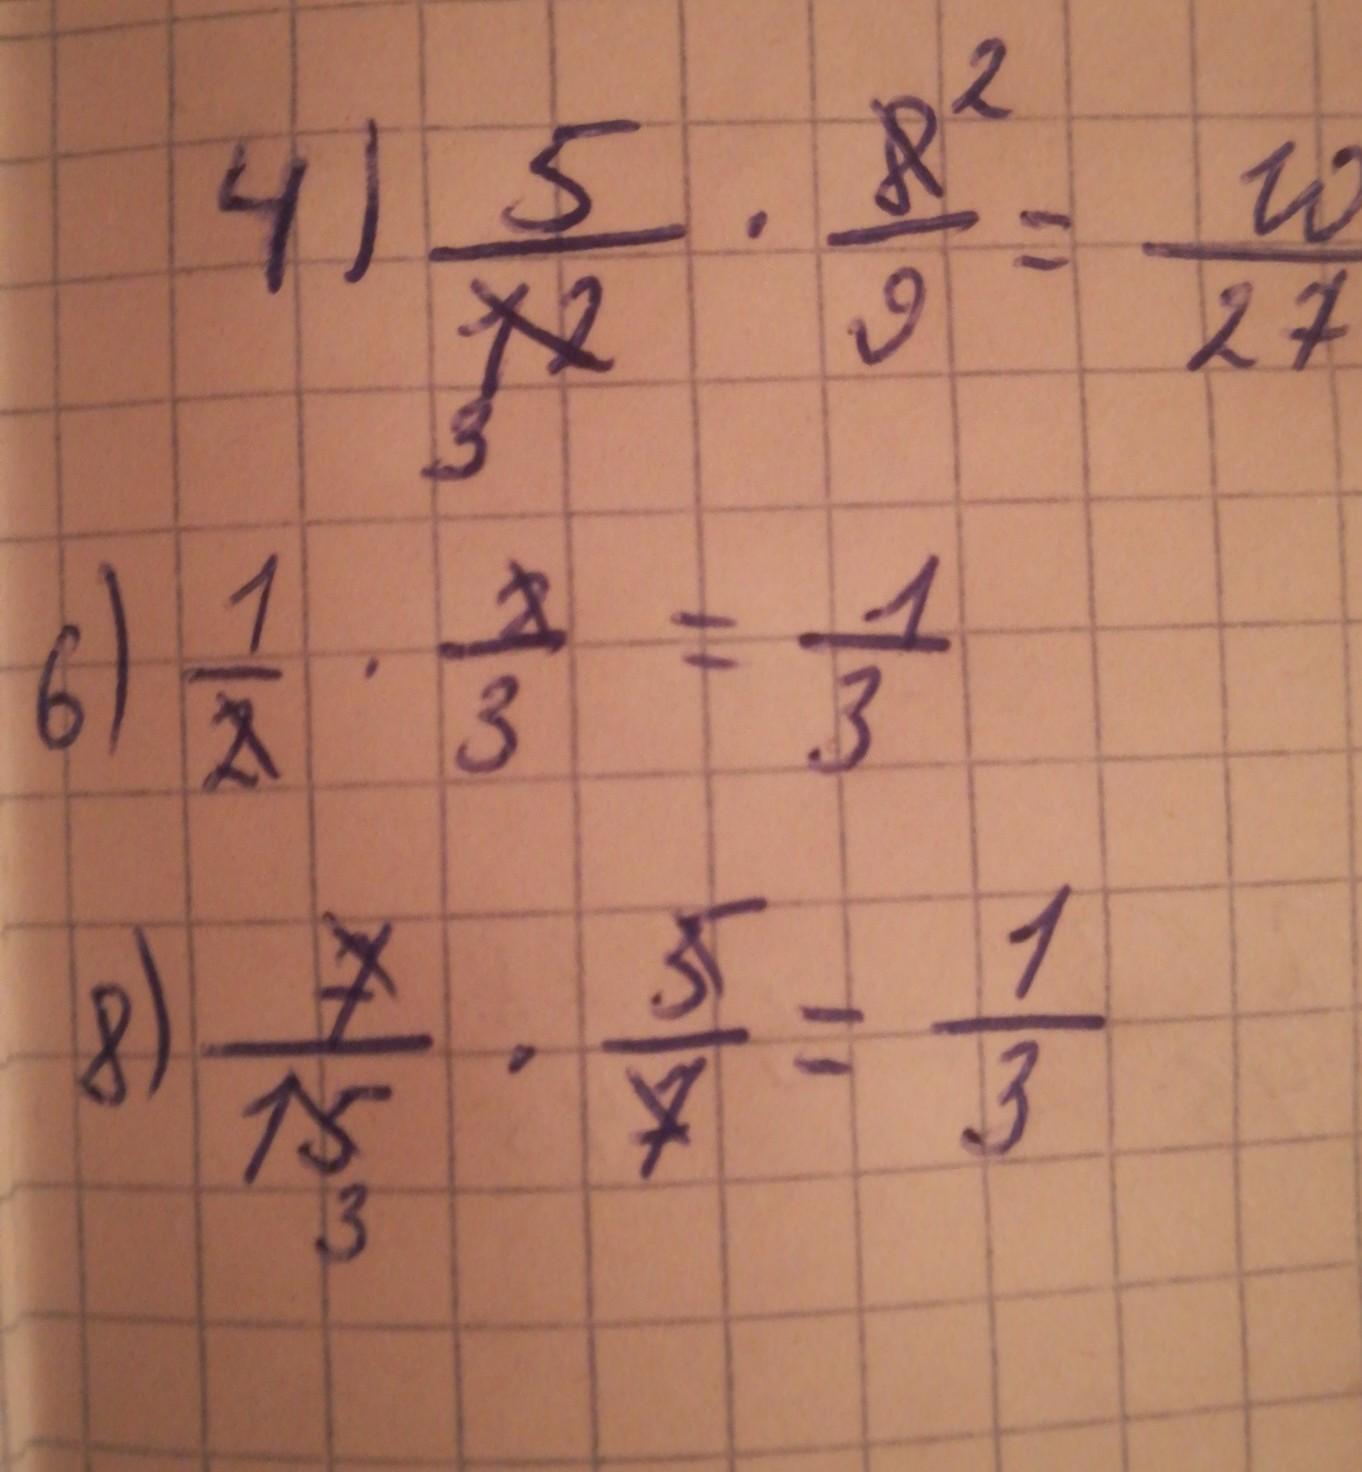 4) 5/12 · 8/9 = 10/27
2
3
6) 1/2 · 2/3 = 1/3
8) 7/15 · 5/7 = 1/3
3